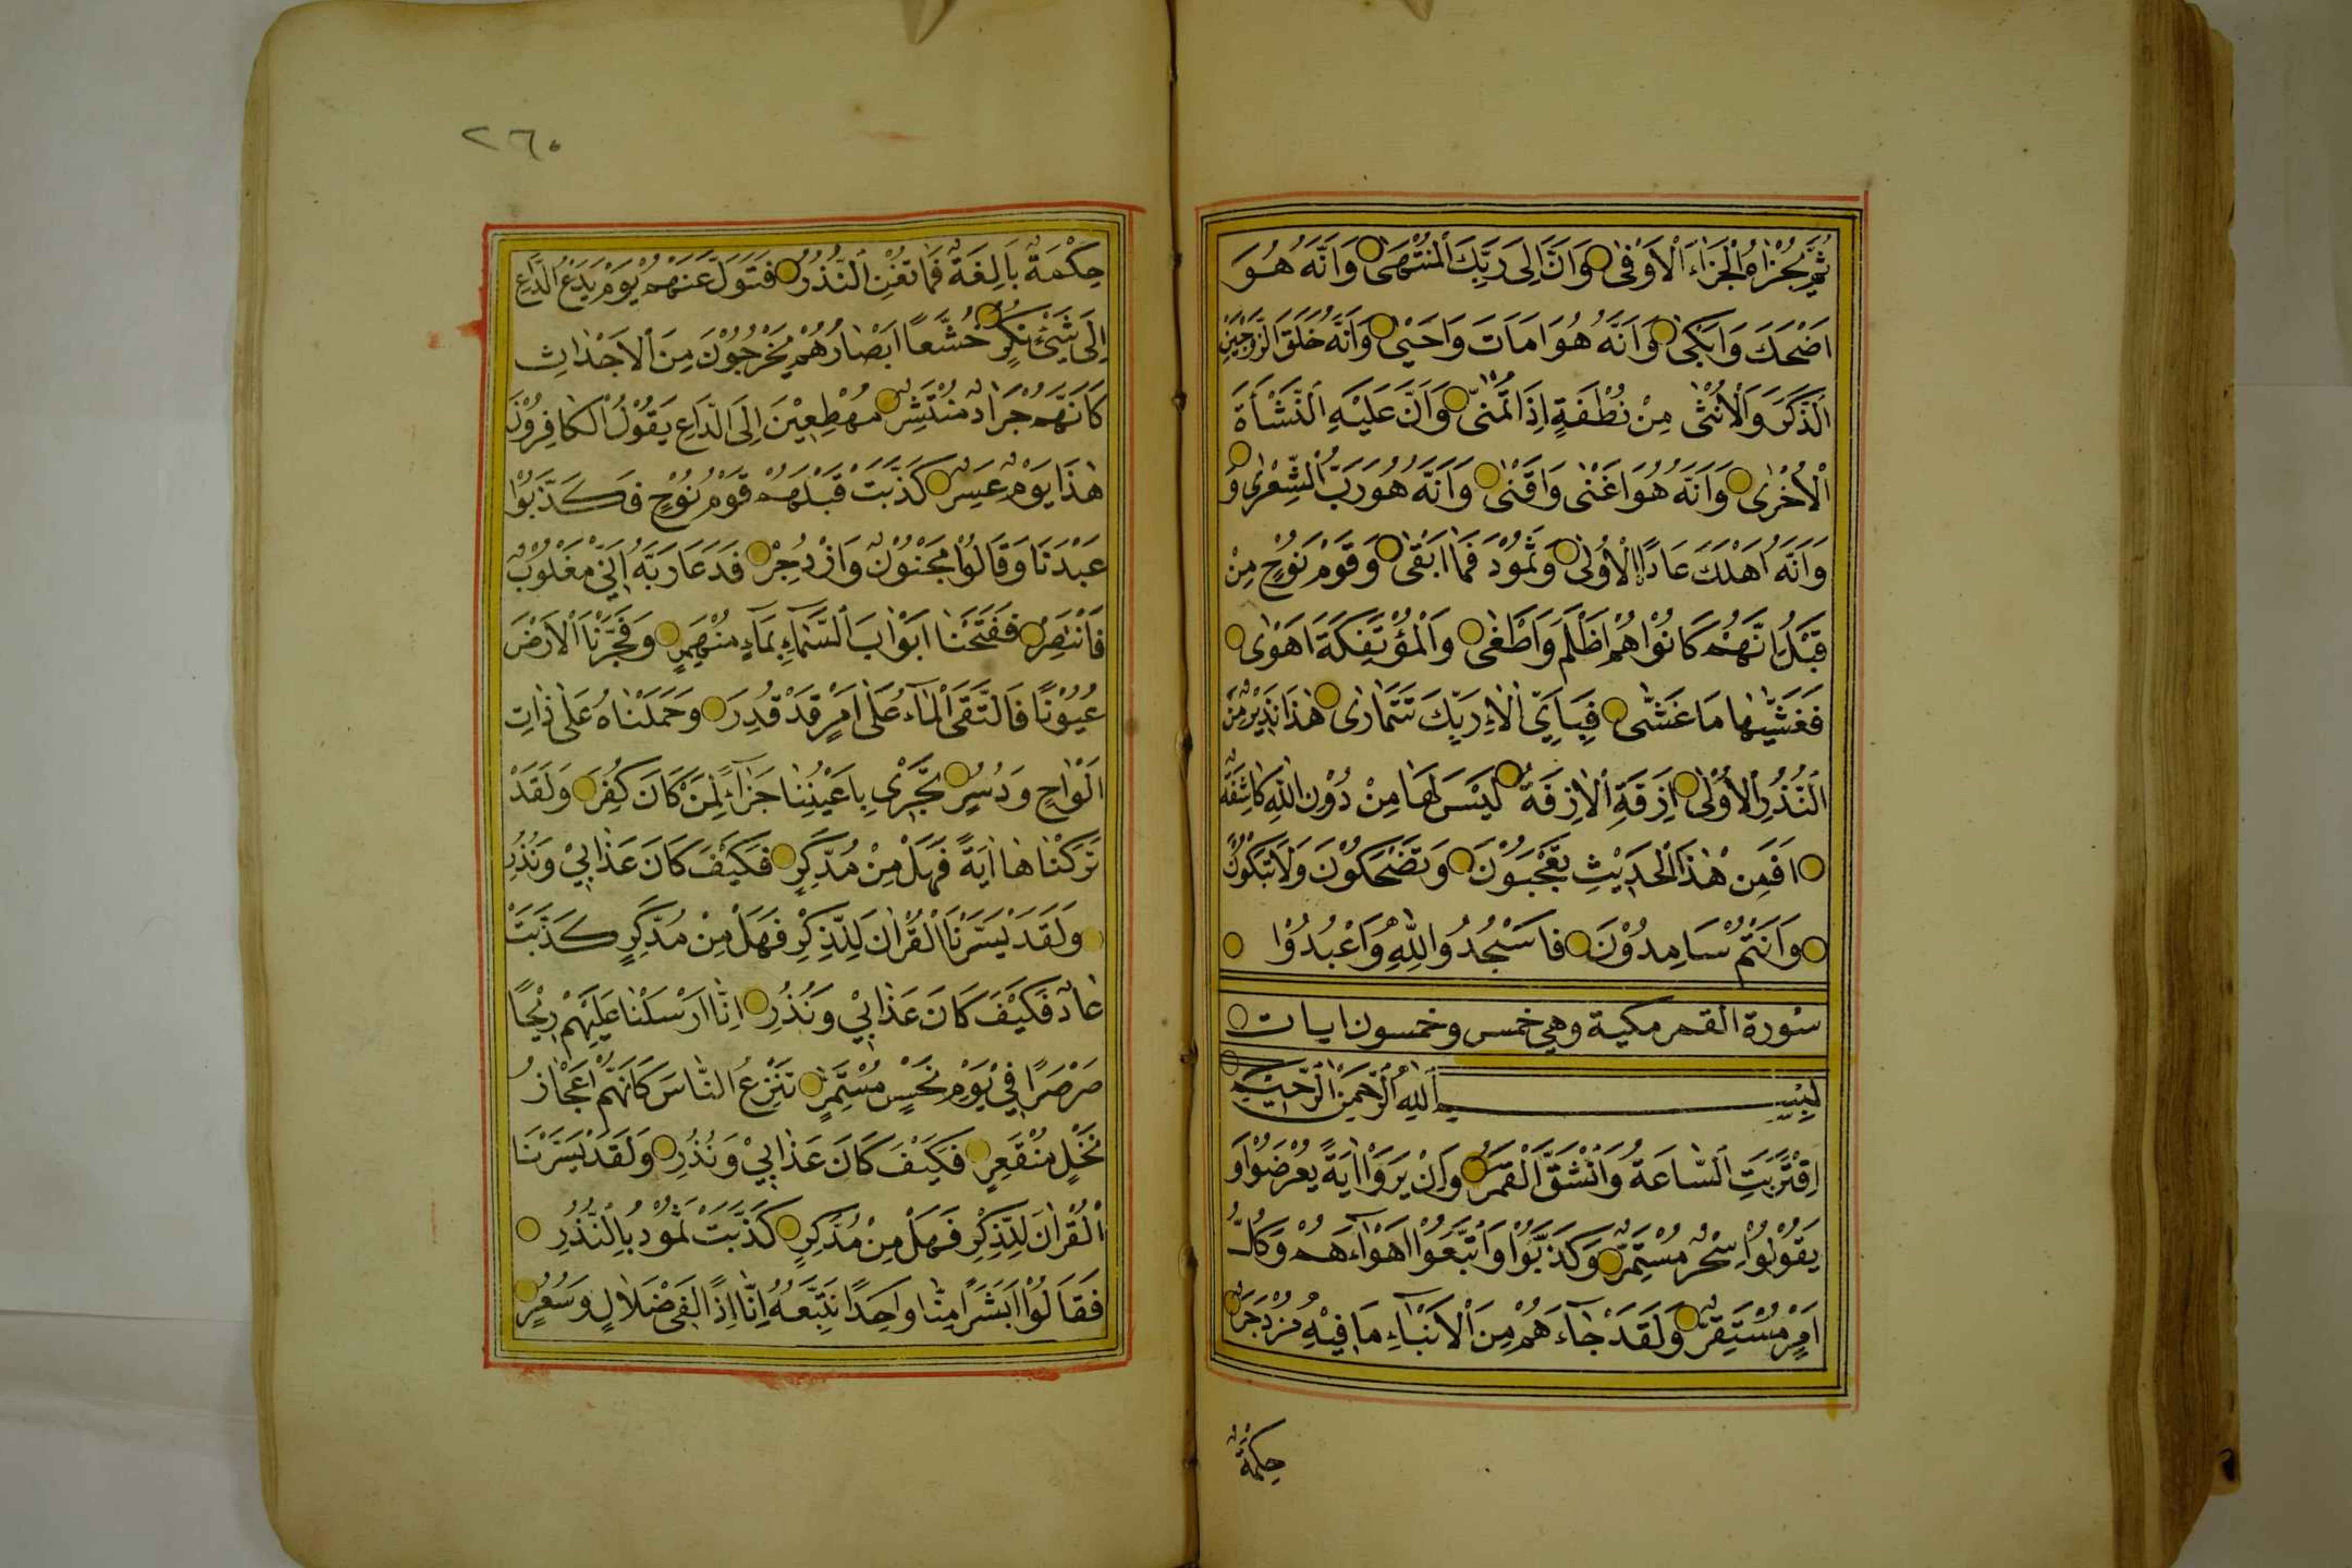 ثُمَّ يُجْزٰاهُ الْجَزَاءَ الْاَوْفٰى وَاَنَّ اِلٰى رَبِّكَ الْمُنْتَهٰى وَاَنَّهُ هُوَ
اَضْحَكَ وَاَبْكٰى وَاَنَّهُ هُوَ اَمَاتَ وَاَحْيٰى وَاَنَّهُ خَلَقَ الزَّوْجَيْنِ
الَذَّكَرَ وَالْاُنْثٰى مِنْ نُطْفَةٍ اِذَا تُمْنٰى وَاَنَّ عَلَيْهِ النَّشْأَةَ
الْاُخْرٰى وَاَنَّهُ هُوَ اَغْنٰى وَاَقْنٰى وَاَنَّهُ هُوَ رَبُّ الشِّعْرٰى وَ
وَاَنَّهُ اَهْلَكَ عَادًا الْاُوْلٰى وَثَمُوْدَ فَمَا اَبْقٰى وَقَوْمَ نُوْحٍ مِنْ
قَبْلُ اِنَّهُمْ كَانُوْا هُمْ اَظْلَمَ وَاَطْغٰى وَالْمُؤْتَفِكَةَ اَهْوٰى
فَغَشّٰيهَا مَا غَشّٰى فَبِاَيِّ اٰلَاءِ رَبِّكَ تَتَمَارٰى هٰذَا نَذِيْرٌ مِنَ
النُّذُرِ الْاُوْلٰى اَزِفَةِ الْاٰزِفَةُ لَيْسَ لَهَا مِنْ دُوْنِ اللّٰهِ كَاشِفَةٌ
اَفَمِنْ هٰذَا الْحَدِيْثِ تَعْجَبُوْنَ وَتَضْحَكُوْنَ وَلَا تَبْكُوْنَ
وَاَنْتُمْ سَامِدُوْنَ فَاسْجُدُوا لِلّٰهِ وَاعْبُدُوْا
سورة القمر مكية وهي خمس وخمسون ايات
بِسْمِ اللّٰهِ الرَّحْمٰنِ الرَّحِيْمِ
اِقْتَرَبَتِ السَّاعَةُ وَانْشَقَّ الْقَمَرُ وَاِنْ يَرَوْا اٰيَةً يُعْرِضُوْا وَ
يَقُوْلُوْا سِحْرٌ مُسْتَمِرٌّ وَكَذَّبُوْا وَاتَّبَعُوْا اَهْوَاءَهُمْ وَكُلُّ
اَمْرٍ مُسْتَقِرٌّ وَلَقَدْ جَاءَهُمْ مِنَ الْاَنْبَاءِ مَا فِيْهِ مُزْدَجَرٌ
حِكْمَةٌ
٢٦٠
حِكْمَةٌ بَالِغَةٌ فَمَا تُغْنِ النُّذُرُ فَتَوَلَّ عَنْهُمْ يَوْمَ يَدْعُ الدَّاعِ
اِلٰى شَيْئٍ نُكُرٍ خُشَّعًا اَبْصَارُهُمْ يَخْرُجُوْنَ مِنَ الْاَجْدَاثِ
كَاَنَّهُمْ جَرَادٌ مُنْتَشِرٌ مُهْطِعِيْنَ اِلَى الدَّاعِ يَقُوْلُ الْكَافِرُوْنَ
هٰذَا يَوْمٌ عَسِرٌ كَذَّبَتْ قَبْلَهُمْ قَوْمُ نُوْحٍ فَكَذَّبُوْا
عَبْدَنَا وَقَالُوْا مَجْنُوْنٌ وَازْدُجِرَ فَدَعَا رَبَّهُ اَنِّيْ مَغْلُوْبٌ
فَانْتَصِرْ فَفَتَحْنَا اَبْوَابَ السَّمَاءِ بِمَاءٍ مُنْهَمِرٍ وَفَجَّرْنَا الْاَرْضَ
عُيُوْنًا فَالْتَقَى الْمَاءُ عَلٰى اَمْرٍ قَدْ قُدِرَ وَحَمَلْنَاهُ عَلٰى ذَاتِ
اَلْوَاحٍ وَدُسُرٍ تَجْرِيْ بِاَعْيُنِنَا جَزَاءً لِمَنْ كَانَ كُفِرَ وَلَقَدْ
تَرَكْنَاهَا اٰيَةً فَهَلْ مِنْ مُدَّكِرٍ فَكَيْفَ كَانَ عَذَابِيْ وَنُذُرِ
وَلَقَدْ يَسَّرْنَا الْقُرْاٰنَ لِلذِّكْرِ فَهَلْ مِنْ مُدَّكِرٍ كَذَّبَتْ
عَادٌ فَكَيْفَ كَانَ عَذَابِيْ وَنُذُرِ اِنَّا اَرْسَلْنَا عَلَيْهِمْ رِيْحًا
صَرْصَرًا فِيْ يَوْمِ نَحْسٍ مُسْتَمِرٍّ تَنْزِعُ النَّاسَ كَاَنَّهُمْ اَعْجَازُ
نَخْلٍ مُنْقَعِرٍ فَكَيْفَ كَانَ عَذَابِيْ وَنُذُرِ وَلَقَدْ يَسَّرْنَا
الْقُرْاٰنَ لِلذِّكْرِ فَهَلْ مِنْ مُدَّكِرٍ كَذَّبَتْ ثَمُوْدُ بِالنُّذُرِ
فَقَالُوْا اَبَشَرًا مِنَّا وَاحِدًا نَتَّبِعُهُ اِنَّا اِذًا لَفِيْ ضَلَالٍ وَسُعُرٍ